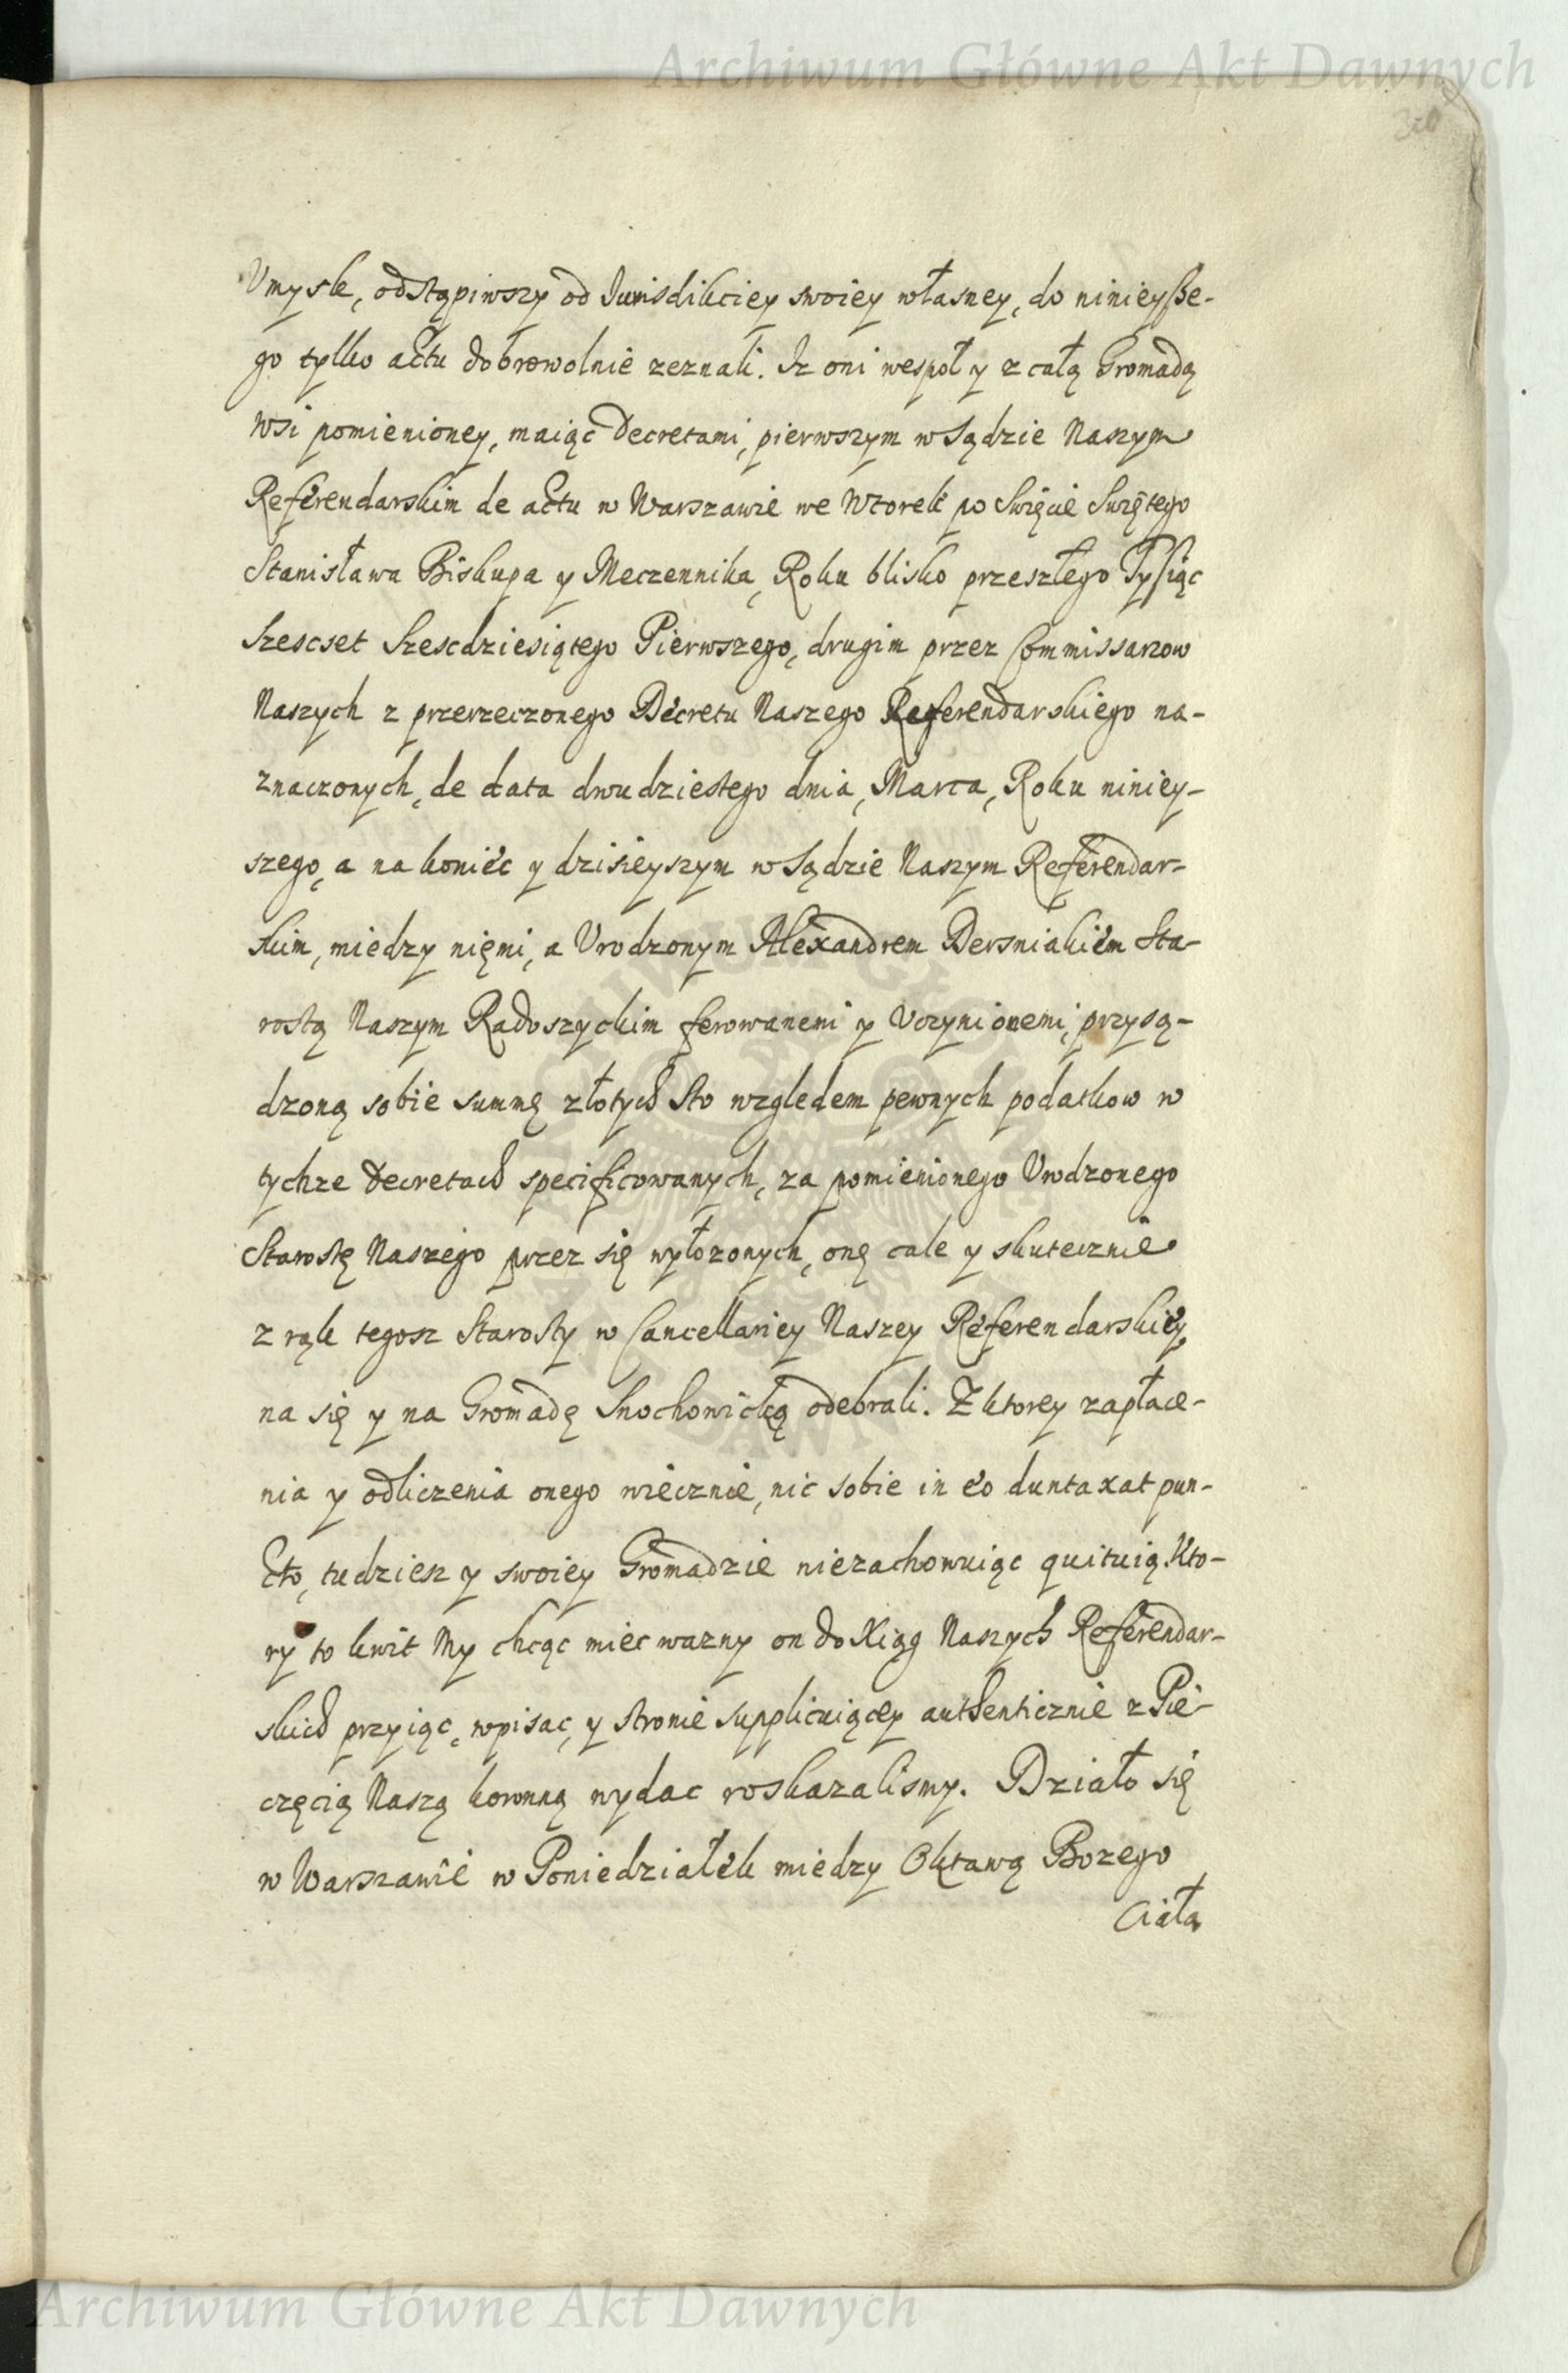 Archiwum Główne Akt Dawnych
Vmysle, odstąpiwszy od Iurisdikciey swoiey własney, do ninieysze-
go tylko actu dobrowolnie zeznali. Iz oni wespoł y z całą Gromadą
wsi pomienioney, maiąc Decretami, pierwszym w Sądzie Naszym
Referendarskim de actu w Warszawie we Wtorek po Swięcie Swiętego
Stanisława Biskupa y Meczennika, Roku blisko przeszłego Tysiąc
Szescset Szescdziesiątego Pierwszego, drugim przez Commissarzow
Naszych z przerzeczonego Decretu Naszego Referendarskiego na-
znaczonych, de data dwudziestego dnia, Marca, Roku niniey-
szego, a na koniec y dzisieyszym w Sądzie Naszym Referendar-
skim, miedzy nięmi, a Vrodzonym Alexandrem Dersniakiem Sta-
rostą Naszym Radoszyckim ferowanemi y Vczynionemi, przysą-
dzoną sobie summę złotych sto względem pewnych podatkow w
tychze Decretach specificowanych, za pomienionego Vrodzonego
Starostę Naszego przez się wyłozonych, onę cale y skutecznie
z rąk tegosz Starosty w Cancellariey Naszey Referendarskiey
na się y na Gromadę Snochowicką odebrali. Z ktorey zapłace-
nia y odliczenia onego wiecznie, nic sobie in eo duntaxat pun-
cto, tudziesz y swoiey Gromadzie niezachowuiąc quituią. Kto-
ry to kwit My chcąc miec wazny on do Xiąg Naszych Referendar-
skich przyiąc, wpisac, y stronie supplicuiącey authenticznie z Pie-
częcią Naszą koronną wydac roskazalismy. Działo się
w Warszawie w Poniedziałek miedzy Oktawą Bozego
Ciała
Archiwum Główne Akt Dawnych